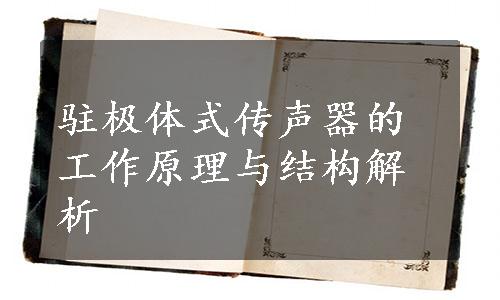 驻极体式传声器的
工作原理与结构解
析